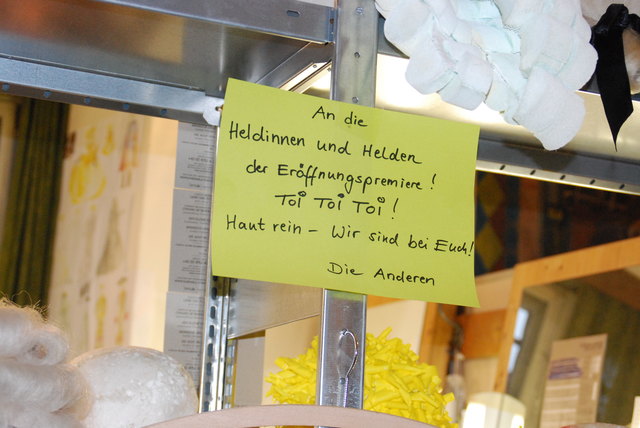 An die
Heldinnen und Helden
der Eröffnungspremiere!
Toi Toi Toi!
Haut rein - Wir sind bei Euch!
Die Anderen